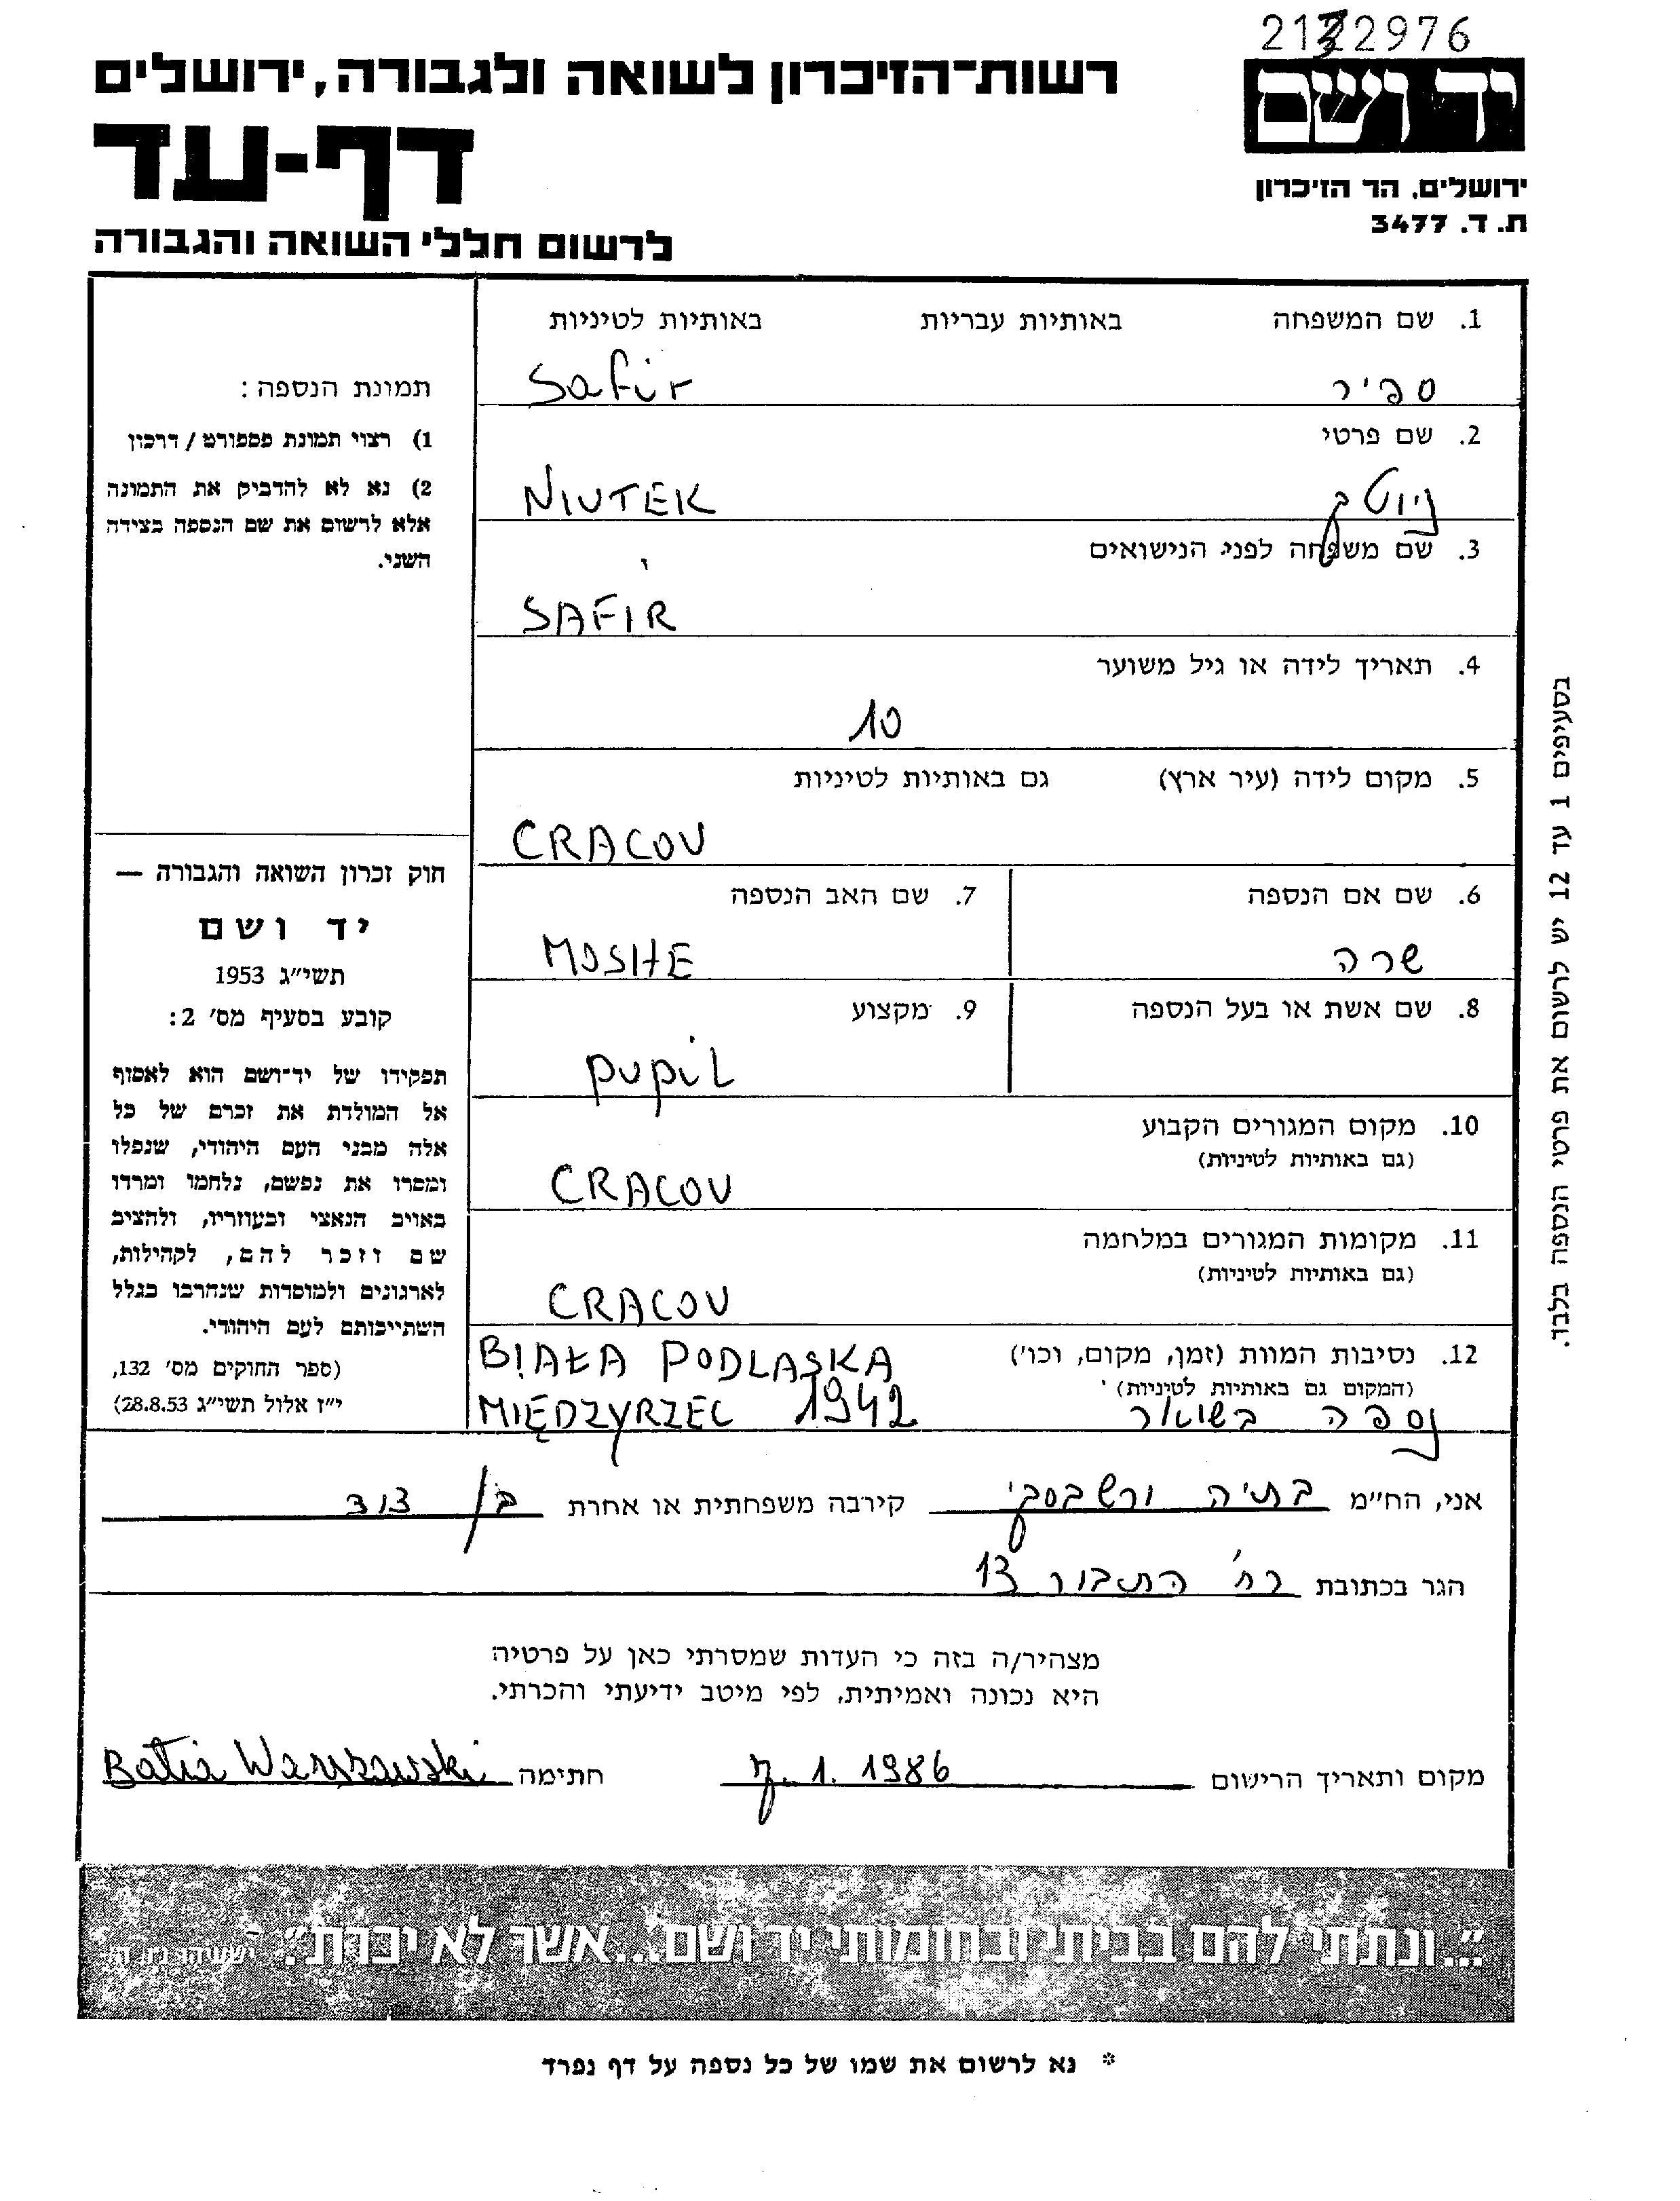 2122976
רשות־הזיכרון לשואה ולגבורה, ירושלים
יד ושם
דף-עד
ירושלים, הר הזיכרון
ת. ד. 3477
לרשום חללי השואה והגבורה
1. שם המשפחה באותיות עבריות באותיות לטיניות
ספיר Safir
2. שם פרטי
ניוטק NIUTEK
3. שם משפחה לפני הנישואים
SAFIR
4. תאריך לידה או גיל משוער
10
5. מקום לידה (עיר ארץ) גם באותיות לטיניות
CRACOV
6. שם אם הנספה 7. שם האב הנספה
שרה MOSHE
8. שם אשת או בעל הנספה 9. מקצוע
pupil
10. מקום המגורים הקבוע
(גם באותיות לטיניות)
CRACOV
11. מקומות המגורים במלחמה
(גם באותיות לטיניות)
CRACOV
12. נסיבות המוות (זמן, מקום, וכו') BIAŁA PODLASKA
(המקום גם באותיות לטיניות)
נספה בשואה MIĘDZYRZEC 1942
תמונת הנספה:
1) רצוי תמונת פספורט / דרכון
2) נא לא להדביק את התמונה
אלא לרשום את שם הנספה בצידה
השני.
חוק זכרון השואה והגבורה —
יד ושם
תשי״ג 1953
קובע בסעיף מס' 2:
תפקידו של יד־ושם הוא לאסוף
אל המולדת את זכרם של כל
אלה מבני העם היהודי, שנפלו
ומסרו את נפשם, נלחמו ומרדו
באויב הנאצי ובעוזריו, ולהציב
שם וזכר להם, לקהילות,
לארגונים ולמוסדות שנחרבו בגלל
השתייכותם לעם היהודי.
(ספר החוקים מס' 132,
י״ז אלול תשי״ג 28.8.53)
בסעיפים 1 עד 12 יש לרשום את פרטי הנספה בלבד.
אני, הח״מ בתיה ורשבסקי קירבה משפחתית או אחרת בן דוד
הגר בכתובת רח' התבור 13
מצהיר/ה בזה כי העדות שמסרתי כאן על פרטיה
היא נכונה ואמיתית, לפי מיטב ידיעתי והכרתי.
מקום ותאריך הרישום 7.1.1986 חתימה Batia Warszawski
״...ונתתי להם בביתי ובחומותי יד ושם...אשר לא יכרת״. ישעיהו נו, ה'
* נא לרשום את שמו של כל נספה על דף נפרד